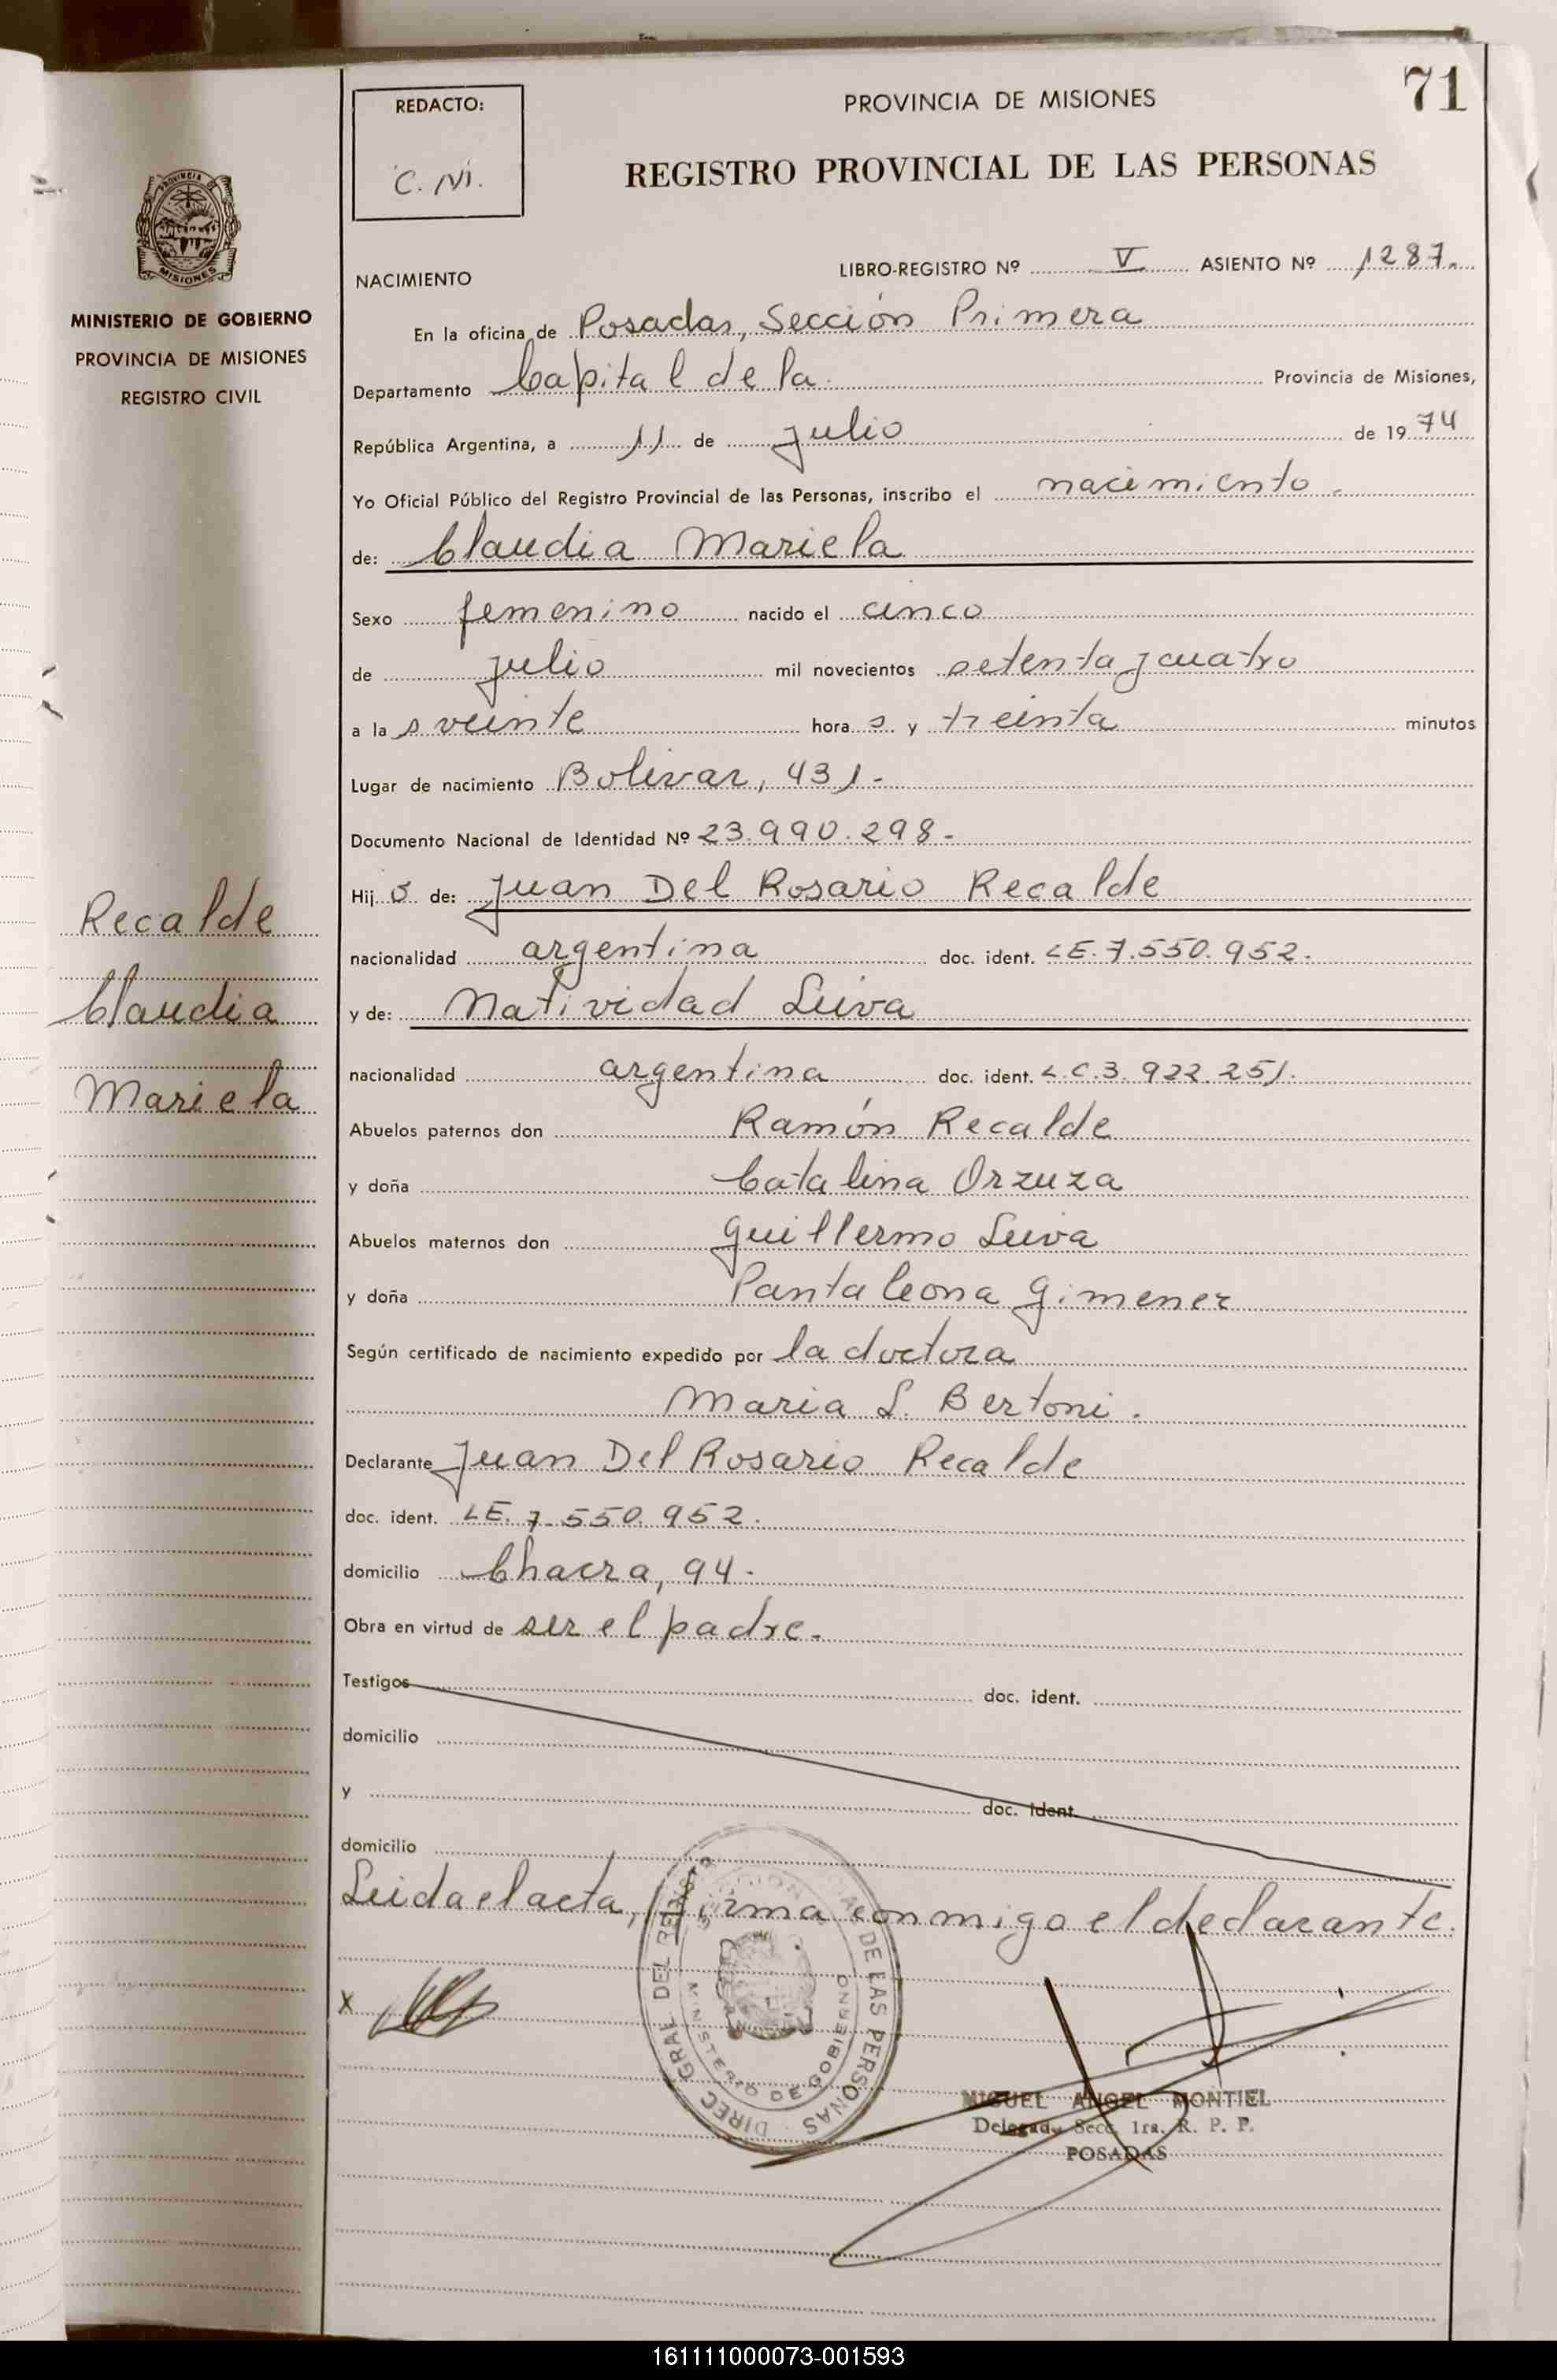 71
REDACTO:
C. N.
PROVINCIA DE MISIONES
REGISTRO PROVINCIAL DE LAS PERSONAS
MISIONES
MINISTERIO DE GOBIERNO
PROVINCIA DE MISIONES
REGISTRO CIVIL
NACIMIENTO
LIBRO-REGISTRO Nº V ASIENTO Nº 1287.
En la oficina de Posadas, Sección Primera
Departamento Capital de la Provincia de Misiones,
República Argentina, a 11 de julio de 1974
Yo Oficial Público del Registro Provincial de las Personas, inscribo el nacimiento.
de: Claudia Mariela
Sexo femenino nacido el cinco
de julio mil novecientos setenta y cuatro
a las veinte horas y treinta minutos
Lugar de nacimiento Bolivar, 431.-
Documento Nacional de Identidad Nº 23.990.298-
Hija de: Juan Del Rosario Recalde
nacionalidad argentina doc. ident. LE. 7.550.952.
y de: Natividad Leiva
nacionalidad argentina doc. ident. L.C.3.922.251.
Abuelos paternos don Ramón Recalde
y doña Catalina Orzuza
Abuelos maternos don Guillermo Leiva
y doña Pantaleona Gimenez
Según certificado de nacimiento expedido por la doctora
Maria L. Bertoni.
Declarante Juan Del Rosario Recalde
doc. ident. LE. 7.550.952.
domicilio Chacra, 94-
Obra en virtud de ser el padre.
Testigos doc. ident.
domicilio
y doc. ident.
domicilio
Leida el acta, firma conmigo el declarante.
X
Recalde
Claudia
Mariela
DIREC. GRAL. DEL REGISTRO DE LAS PERSONAS
MINISTERIO DE GOBIERNO
MIGUEL ANGEL MONTIEL
Delegado Secc. 1ra. R. P. P.
POSADAS
161111000073-001593